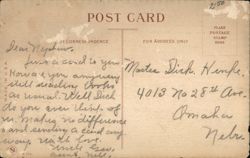 2/50
POST CARD
CORRESPONDENCE
FOR ADDRESS ONLY
PLACE
POSTAGE
STAMP
HERE
Dear Nephew.
Just a card to you.
How are you anyway
still reading books
as usual. Well Dick
do you ever think of
us. Makes no difference
and sending a card any
way with love
Uncle
Aunt
Master Dick
4013 No 28th Ave.
Omaha
Nebr